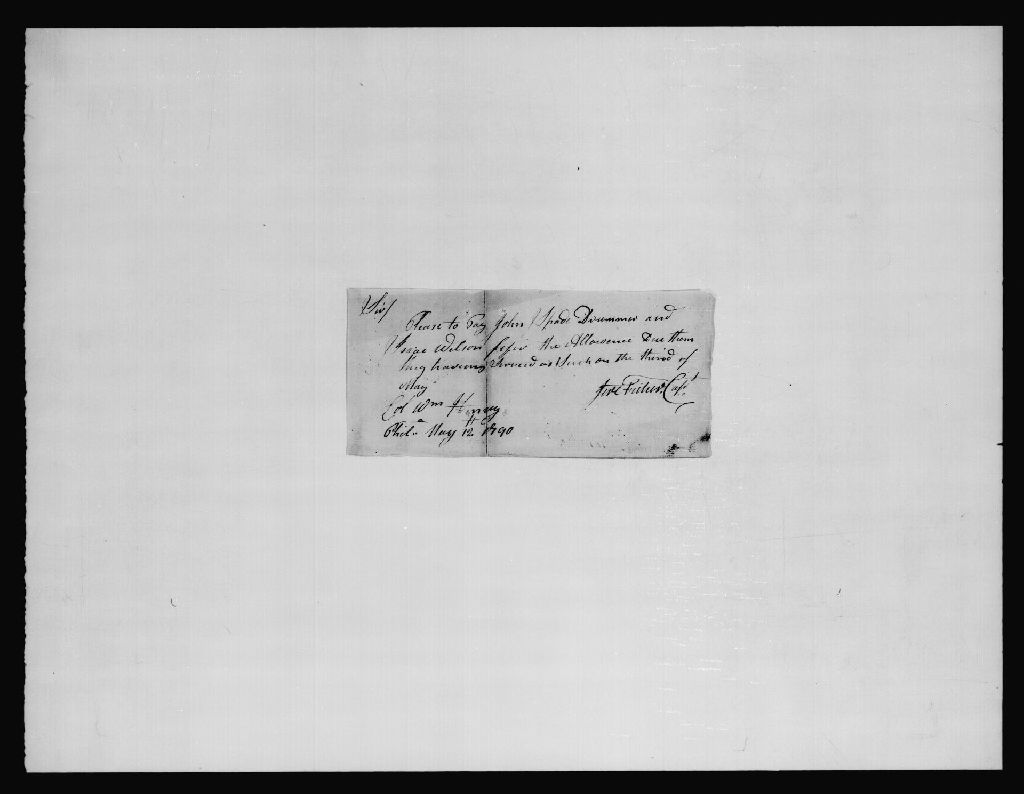 Sir/
Please to Pay John Spade Drummer and
Isaac Wilson fifer the Allowence Due them
they having Served as Such on the third of
May
Capt
Col Wm Henry
Phila. May 12 1790